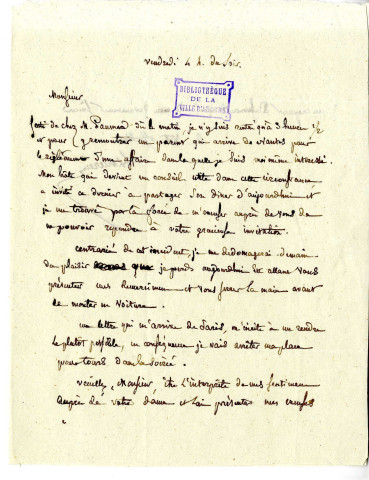 vendredi 4 h. du soir.
BIBLIOTHÈQUE
DE LA
VILLE D'ANGERS
Monsieur
de chez M. dès le matin, je n'y suis rentré qu'à 3 heures 1/2
et pour y rencontrer un parent qui arrive de Nantes pour
le règlement d'une affaire dans laquelle je suis moi même intéressé.
Mon hôte qui devient un conseil utile dans cette circonstance
a invité ce dernier à partager son dîner d'aujourd'hui et
je me trouve par là forcé de m'excuser auprès de vous de
ne pouvoir répondre à votre gracieuse invitation.
contrarié de cet incident, je me dédomagerai demain
du plaisir que je perds aujourd'hui en allant vous
présenter mes remerciemens et vous serrer la main avant
de monter en voiture.
une lettre qui m'arrive de Paris, m'invite à me rendre
le plutôt possible, en conséquence je vais arrêter ma place
pour tours dans la soirée.
veuillez, Monsieur être l'interprète de mes sentimens
auprès de votre dame et lui présenter mes excuses